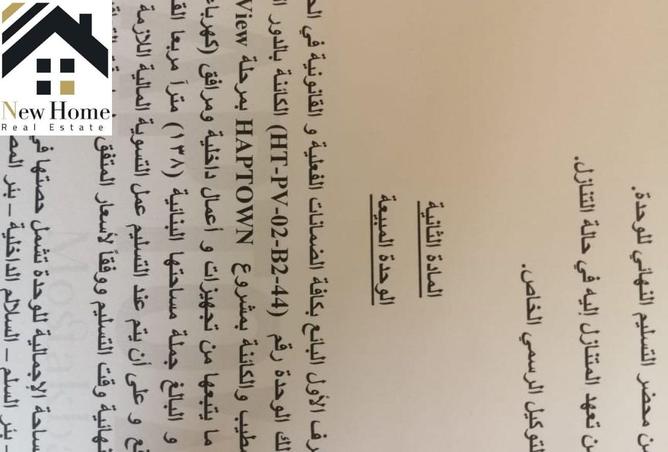 New Home
Real Estate
ن محضر التسليم النهائي للوحدة.
ن تعهد المتنازل إليه في حالة التنازل.
لتوكيل الرسمي الخاص.
المادة الثانية
الوحدة المبيعة
رف الأول البائع بكافة الضمانات الفعلية و القانونية في
لك الوحدة رقم (HT-PV-02-B2-44) الكائنة بالدور
طيب والكائنة بمشروع HAPTOWN بمرحلة View
ما يتبعها من تجهيزات و أعمال داخلية ومرافق (كهرباء
و البالغ جملة مساحتها البنائية (١٣٨) متراً مربعا
ع و على أن يتم عند التسليم عمل التسوية المالية اللازمة
نهائية وقت التسليم ووفقاً لأسعار المتفق
ساحة الاجمالية للوحدة تشمل حصتها في
بئر السلم – السلالم الداخلية – بئر